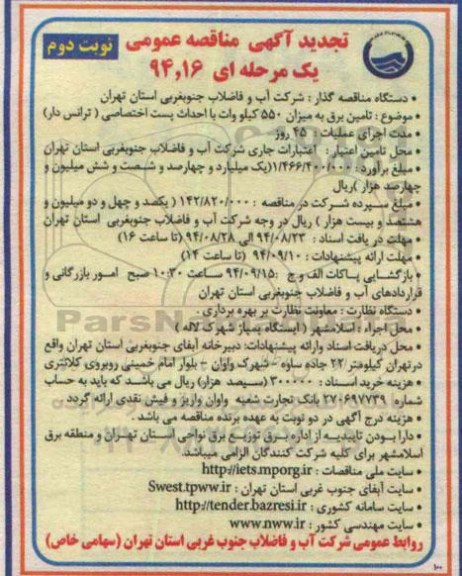 تجدید آگهی مناقصه عمومی
یک مرحله ای ۹۴,۱۶
نوبت دوم
• دستگاه مناقصه گذار : شرکت آب و فاضلاب جنوبغربی استان تهران
• موضوع : تامین برق به میزان ۵۵۰ کیلو وات با احداث پست اختصاصی ( ترانس دار)
• مدت اجرای عملیات : ۴۵ روز
• محل تامین اعتبار : اعتبارات جاری شرکت آب و فاضلاب جنوبغربی استان تهران
• مبلغ برآورد : ۱/۴۶۶/۴۰۰/۰۰۰(یک میلیارد و چهارصد و شصت و شش میلیون و
چهارصد هزار )ریال
• مبلغ سپرده شرکت در مناقصه : ۱۴۲/۸۲۰/۰۰۰ ( یکصد و چهل و دو میلیون و
هشتصد و بیست هزار ) ریال در وجه شرکت آب و فاضلاب جنوبغربی استان تهران
• مهلت در یافت اسناد : ۹۴/۰۸/۲۳ الی ۹۴/۰۸/۲۸ (تا ساعت ۱۶)
• مهلت ارائه پیشنهادات : ۹۴/۰۹/۱۰ (تا ساعت ۱۴)
• بازگشایی پاکات الف و ج : ۹۴/۰۹/۱۵ ساعت ۱۰:۳۰ صبح امور بازرگانی و
قراردادهای آب و فاضلاب جنوبغربی استان تهران
• دستگاه نظارت : معاونت نظارت بر بهره برداری .
• محل اجراء : اسلامشهر ( ایستگاه پمپاژ شهرک لاله )
• محل دریافت اسناد وارائه پیشنهادات: دبیرخانه آبفای جنوبغربی استان تهران واقع
درتهران کیلومتر/۲۲ جاده ساوه – شهرک واوان – بلوار امام خمینی روبروی کلانتری
• هزینه خرید اسناد : ۳۰۰۰۰۰ (سیصد هزار) ریال می باشد که باید به حساب
شماره ۲۷۰۶۹۷۷۳۹ بانک تجارت شعبه واوان واریز و فیش نقدی ارائه گردد .
• هزینه درج آگهی در دو نوبت به عهده برنده مناقصه می باشد .
• دارا بودن تاییدیه از اداره برق توزیع برق نواحی استان تهران و منطقه برق
اسلامشهر برای کلیه شرکت کنندگان الزامی میباشد.
• سایت ملی مناقصات : http://iets.mporg.ir
• سایت آبفای جنوب غربی استان تهران : Swest.tpww.ir
• سایت سامانه کشوری : http://tender.bazresi.ir
• سایت مهندسی کشور : www.nww.ir
روابط عمومی شرکت آب و فاضلاب جنوب غربی استان تهران (سهامی خاص)